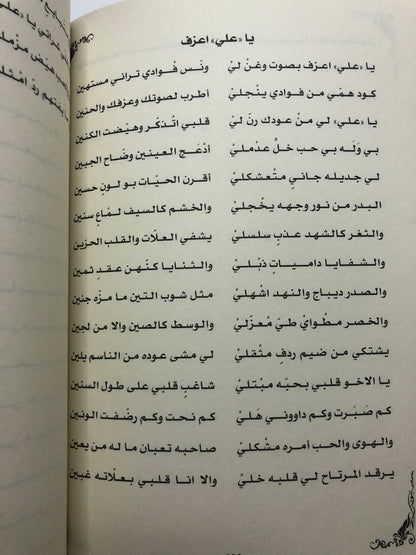 يا «علي» اعزف
يا «علي» اعزف بصوت وغنّ ليْ ونَس فُوادي تراني مستهين
كود همّي من فوادي ينجليْ أطرب لصوتك وعزفك والحنين
يا «علي» لي من عودك رنّ ليْ قلبي اتّذكّر وهيّضت الكنين
بي وَله بي حب خلٍّ عدّمليْ أدْعَج العينين وضّاح الجبين
لي جديله جاني متْعشكليْ أقرن الحيّات بو لونٍ حسين
البدر من نور وجهه يخْجليْ والخشم كالسيف لمّاعٍ سنين
والثغر كالشهد عذبٍ سلسليْ يشفي العلات والقلب الحزين
والشفايا دامياتٍ ذبّليْ والثنايا كنّهن عقدٍ ثمين
والصدر ديباج والنهد اشهليْ مثل شوب التين ما مزّه جنين
والخصر مطْوايْ طيّ معْزليْ والوسط كالصين والا من لجين
يشتكي من ضيم ردفٍ مثْقليْ لي مشى عوده من الناسم يلين
يا الاخو قلبي بحبّه مبْتليْ شاغبٍ قلبي على طول السنين
كم صَبَرت وكم داووني هَليْ كم نحت وكم رضّفت الونين
والهوى والحب أمره مشْكليْ صاحبه تعبان ما له من يعين
يرقد المرتاح لي قلبه خليْ والا انا قلبي بعلّاته غبين